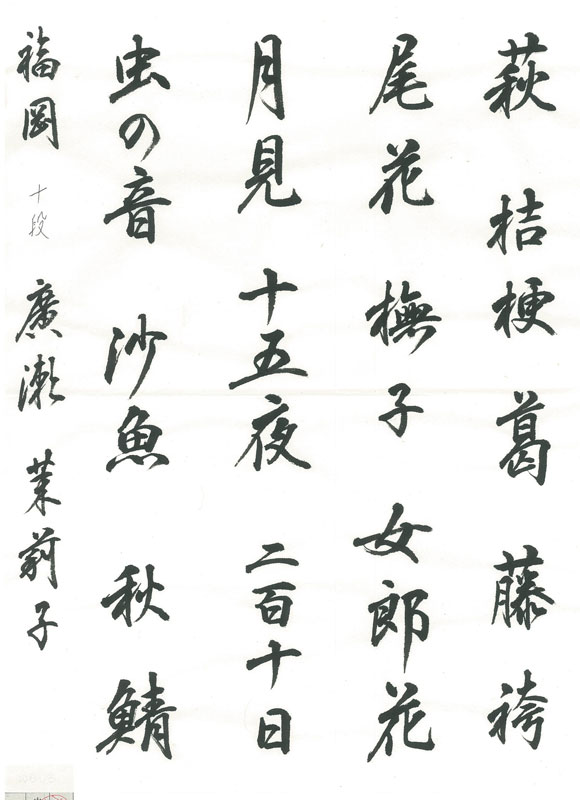 萩 桔梗 葛 藤袴
尾花 撫子 女郎花
月見 十五夜 二百十日
虫の音 沙魚 秋鯖
福岡 十段 廣瀬 茉莉子